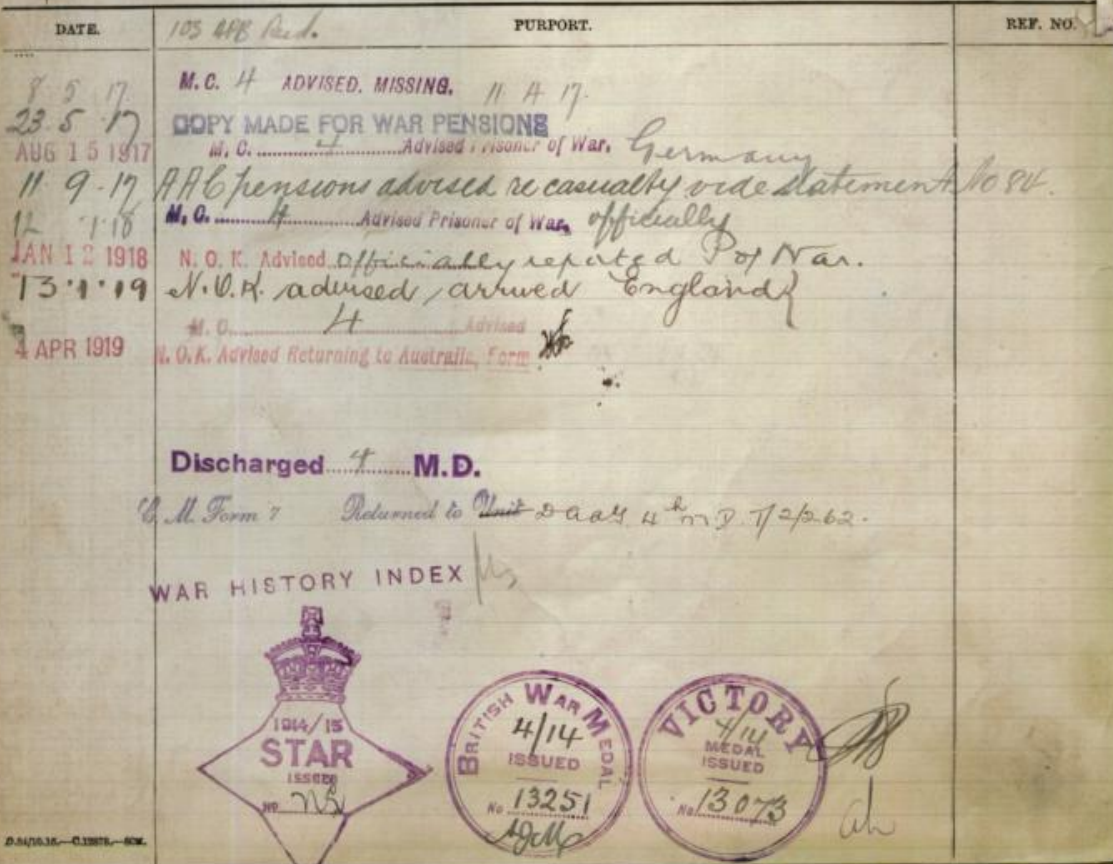 DATE. PURPORT. REF. NO.
103
8 5 17. M.C. 4 ADVISED. MISSING. 11 4 17.
23.5.17 COPY MADE FOR WAR PENSIONS
AUG 15 1917 M.C. 4 Advised Prisoner of War. Germany
11.9.17 AAG pensions advised re casualty vide statement No 84.
12 1.18 M.C. 4 Advised Prisoner of War, officially
JAN 12 1918 N.O.K. Advised officially reported P of War.
13.1.19 N.O.K. advised, arrived England
M.C. 4 Advised
4 APR 1919 N.O.K. Advised Returning to Australia, Form
Discharged 4 M.D.
G.M. Form 7 Returned to Unit DAAG 4th M.D. 7/2/262.
WAR HISTORY INDEX
1914/15
STAR
ISSUED
No Nil
BRITISH WAR MEDAL
4/14
ISSUED
No 13251
VICTORY
4/14
MEDAL
ISSUED
No. 13073